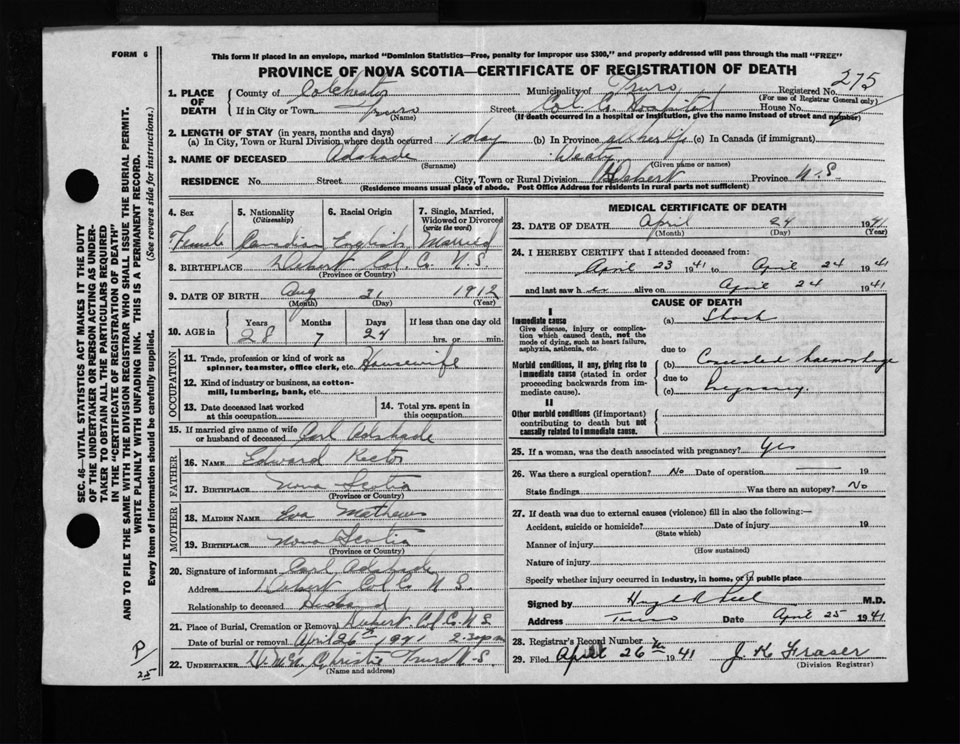 FORM 6
This form if placed in an envelope, marked "Dominion Statistics—Free, penalty for improper use $300," and properly addressed will pass through the mail "FREE"
PROVINCE OF NOVA SCOTIA—CERTIFICATE OF REGISTRATION OF DEATH
275
1. PLACE OF DEATH
County of Colchester
Municipality of Truro
Registered No.
(For use of Registrar General only)
If in City or Town Truro
(Name)
Street Col. Co. Hospital House No.
(If death occurred in a hospital or institution, give the name instead of street and number)
2. LENGTH OF STAY (in years, months and days)
(a) In City, Town or Rural Division where death occurred 1 day (b) In Province (c) In Canada (if immigrant)
3. NAME OF DECEASED Adshade
(Surname) (Given name or names)
RESIDENCE No. Street City, Town or Rural Division Debert Province N.S.
(Residence means usual place of abode. Post Office Address for residents in rural parts not sufficient)
4. Sex
Female
5. Nationality
(Citizenship)
Canadian
6. Racial Origin
English
7. Single, Married, Widowed or Divorced
(write the word)
Married
8. BIRTHPLACE Debert Col. Co. N.S.
(Province or Country)
9. DATE OF BIRTH Aug 31 1912
(Month) (Day) (Year)
10. AGE in
Years Months Days If less than one day old
28 7 24 hrs. or min.
OCCUPATION
11. Trade, profession or kind of work as spinner, teamster, office clerk, etc. Housewife
12. Kind of industry or business, as cotton-mill, lumbering, bank, etc.
13. Date deceased last worked at this occupation
14. Total yrs. spent in this occupation
15. If married give name of wife or husband of deceased Carl Adshade
FATHER
16. NAME Edward Rector
17. BIRTHPLACE Nova Scotia
(Province or Country)
MOTHER
18. MAIDEN NAME Eva Mathews
19. BIRTHPLACE Nova Scotia
(Province or Country)
20. Signature of informant Carl Adshade
Address Debert Col. Co. N.S.
Relationship to deceased Husband
21. Place of Burial, Cremation or Removal Debert Col. Co. N.S.
Date of burial or removal April 26th 1941 2:30 pm
22. UNDERTAKER Christie Truro N.S.
(Name and address)
MEDICAL CERTIFICATE OF DEATH
23. DATE OF DEATH April 24 1941
(Month) (Day) (Year)
24. I HEREBY CERTIFY that I attended deceased from:
April 23 1941 to April 24 1941
and last saw her alive on April 24 1941
CAUSE OF DEATH
I
Immediate cause
Give disease, injury or complication which caused death, not the mode of dying, such as heart failure, asphyxia, asthenia, etc.
(a) Shock
due to
Morbid conditions, if any, giving rise to immediate cause (stated in order proceeding backwards from immediate cause).
(b) Concealed haemorrhage
due to
(c) Pregnancy
II
Other morbid conditions (if important) contributing to death but not causally related to immediate cause.
25. If a woman, was the death associated with pregnancy? Yes
26. Was there a surgical operation? No Date of operation — 19
State findings Was there an autopsy? No
27. If death was due to external causes (violence) fill in also the following:—
Accident, suicide or homicide? Date of injury 19
(State which)
Manner of injury
(How sustained)
Nature of injury
Specify whether injury occurred in industry, in home, or in public place
Signed by Hugh R Peel M.D.
Address Truro Date April 25 1941
28. Registrar's Record Number
29. Filed April 26th 1941 J. K. Fraser
(Division Registrar)
SEC. 46—VITAL STATISTICS ACT MAKES IT THE DUTY OF THE UNDERTAKER OR PERSON ACTING AS UNDERTAKER TO OBTAIN ALL THE PARTICULARS REQUIRED IN THE "CERTIFICATE OF REGISTRATION OF DEATH"
AND TO FILE THE SAME WITH THE DIVISION REGISTRAR WHO SHALL ISSUE THE BURIAL PERMIT.
WRITE PLAINLY WITH UNFADING INK. THIS IS A PERMANENT RECORD.
Every item of Information should be carefully supplied. (See reverse side for instructions.)
P
25